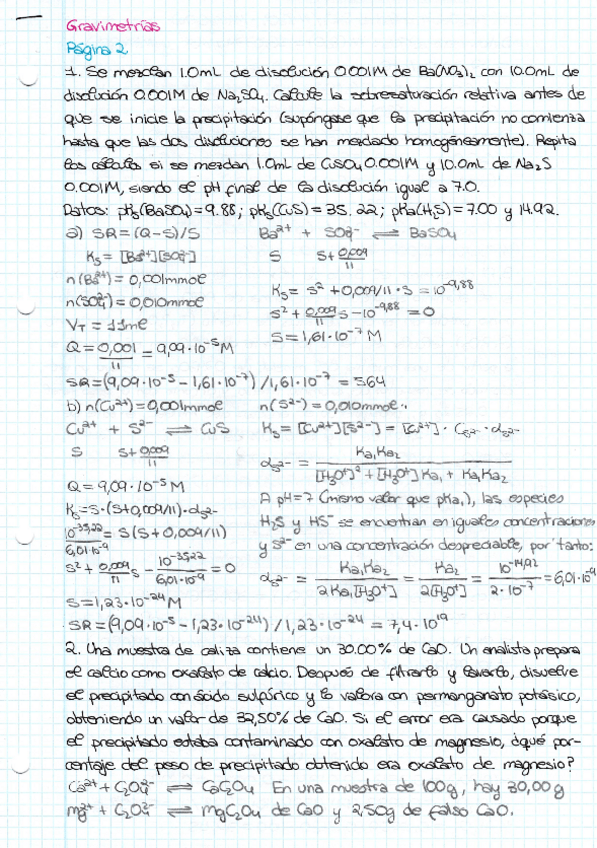 Gravimetrías
Página 2
1. Se mezclan 1.0mL de disolución 0.001M de Ba(NO₃)₂ con 10.0mL de
disolución 0.001M de Na₂SO₄. Calcule la sobresaturación relativa antes de
que se inicie la precipitación (supóngase que la precipitación no comienza
hasta que las dos disoluciones se han mezclado homogéneamente). Repita
los cálculos si se mezclan 1.0mL de CuSO₄ 0.001M y 10.0mL de Na₂S
0.001M, siendo el pH final de la disolución igual a 7.0.
Datos: pKs(BaSO₄)=9.88; pKs(CuS)=35.22; pKa(H₂S)=7.00 y 14.92.
a) SR=(Q-S)/S Ba²⁺ + SO₄²⁻ ⇌ BaSO₄
Ks=[Ba²⁺][SO₄²⁻] S S+0,009/11
n(Ba²⁺)=0,001mmol
n(SO₄²⁻)=0,010mmol Ks=S²+0,009/11·S=10^-9,88
VT=11ml S²+0,009/11 S-10^-9,88=0
Q=0,001/11=9,09·10⁻⁵M S=1,61·10⁻⁷M
SR=(9,09·10⁻⁵-1,61·10⁻⁷)/1,61·10⁻⁷=564
b) n(Cu²⁺)=0,001mmol n(S²⁻)=0,010mmol.
Cu²⁺ + S²⁻ ⇌ CuS Ks=[Cu²⁺][S²⁻]=[Cu²⁺]·C_S²⁻·α_S²⁻
S S+0,009/11
α_S²⁻=Ka₁Ka₂/([H₃O⁺]²+[H₃O⁺]Ka₁+Ka₁Ka₂)
Q=9,09·10⁻⁵M A pH=7 (mismo valor que pKa₁), las especies
Ks=S·(S+0,009/11)·α_S²⁻ H₂S y HS⁻ se encuentran en iguales concentraciones
10^-35,22/6,01·10⁻⁹=S(S+0,009/11) y S²⁻ en una concentración despreciable, por tanto:
S²+0,009/11 S-10^-35,22/6,01·10⁻⁹=0 α_S²⁻=Ka₁Ka₂/2Ka₁[H₃O⁺]=Ka₂/2[H₃O⁺]=10^-14,92/2·10⁻⁷=6,01·10⁻⁹
S=1,23·10⁻²⁴M
SR=(9,09·10⁻⁵-1,23·10⁻²⁴)/1,23·10⁻²⁴=7,4·10¹⁹
2. Una muestra de caliza contiene un 30.00% de CaO. Un analista prepara
el calcio como oxalato de calcio. Después de filtrarlo y lavarlo, disuelve
el precipitado con ácido sulfúrico y lo valora con permanganato potásico,
obteniendo un valor de 32,50% de CaO. Si el error era causado porque
el precipitado estaba contaminado con oxalato de magnesio, ¿qué por-
centaje del peso de precipitado obtenido era oxalato de magnesio?
Ca²⁺ + C₂O₄²⁻ ⇌ CaC₂O₄ En una muestra de 100g, hay 30,00g
Mg²⁺ + C₂O₄²⁻ ⇌ MgC₂O₄ de CaO y 2,50g de falso CaO.